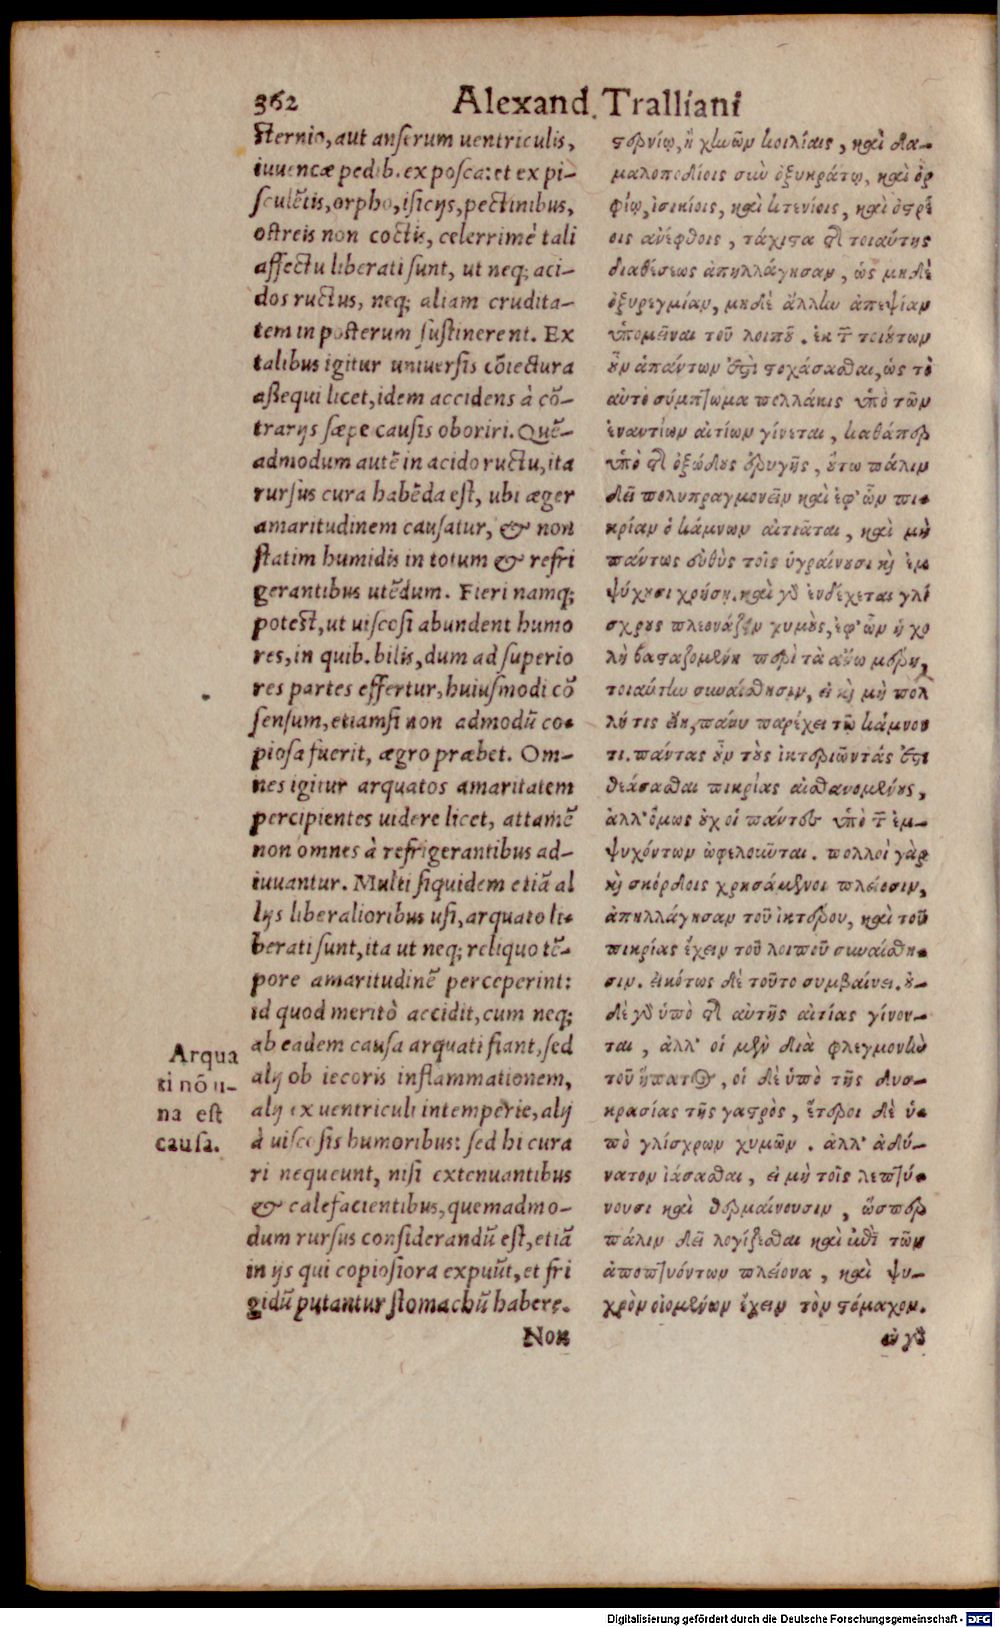 362
Alexand. Tralliani
sternio, aut anserum uentriculis,
iuuencæ pedib. ex posca: et ex pi-
sculētis, orpho, isicijs, pectinibus,
ostreis non coctis, celerrimè tali
affectu liberati sunt, ut neq; aci-
dos ructus, neq; aliam crudita-
tem in posterum sustinerent. Ex
talibus igitur uniuersis cōiectura
assequi licet, idem accidens à cō-
trarijs sæpe causis oboriri. Quē-
admodum autē in acido ructu, ita
rursus cura habēda est, ubi æger
amaritudinem causatur, & non
statim humidis in totum & refri
gerantibus utēdum. Fieri namq;
potest, ut uiscosi abundent humo
res, in quib. bilis, dum ad superio
res partes effertur, huiusmodi cō
sensum, etiamsi non admodū co-
piosa fuerit, ægro præbet. Om-
nes igitur arquatos amaritatem
percipientes uidere licet, attamē
non omnes à refrigerantibus ad-
iuuantur. Multi siquidem etiā al
lijs liberalioribus usi, arquato li-
berati sunt, ita ut neq; reliquo tē-
pore amaritudinē perceperint:
id quod meritò accidit, cum neq;
ab eadem causa arquati fiant, sed
alij ob iecoris inflammationem,
alij ex uentriculi intemperie, alij
à uiscosis humoribus: sed hi cura
ri nequeunt, nisi extenuantibus
& calefacientibus, quemadmo-
dum rursus considerandū est, etiā
in ijs qui copiosiora expuūt, et fri
gidū putantur stomachū habere.
Non
Arqua
ti nō u-
na est
causa.
στερνίῳ, ἢ χηνῶν κοιλίαις, καὶ δα-
μαλοποδίοις σὺν ὀξυκράτῳ, καὶ ὀρ
φίῳ, ἰσικίοις, καὶ κτενίοις, καὶ ὀστρέ
οις ἀνέφθοις, τάχιστα τῆς τοιαύτης
διαθέσεως ἀπηλλάγησαν, ὡς μηδὲ
ὀξυρεγμίαν, μηδὲ ἄλλην ἀπεψίαν
ὑπομεῖναι τοῦ λοιποῦ. ἐκ τῶν τοιούτων
οὖν ἁπάντων ἔστι στοχάσασθαι, ὡς τὸ
αὐτὸ σύμπτωμα πολλάκις ὑπὸ τῶν
ἐναντίων αἰτίων γίνεται, καθάπερ
ὑπὸ τῆς ὀξώδους ἐρυγῆς, οὕτω πάλιν
δεῖ πολυπραγμονεῖν καὶ ἐφ' ὧν πι-
κρίαν ὁ κάμνων αἰτιᾶται, καὶ μὴ
πάντως εὐθὺς τοῖς ὑγραίνουσι κỳ ἐμ
ψύχουσι χρήσῃ. καὶ γὰρ ἐνδέχεται γλί
σχρους πλεονάζειν χυμοὺς, ἐφ' ὧν ἡ χο
λὴ βασταζομένη περὶ τὰ ἄνω μέρη,
τοιαύτην συναίσθησιν, εἰ κỳ μὴ πολ
λή τις εἴη, πάνυ παρέχει τῷ κάμνον
τι. πάντας οὖν τοὺς ἰκτεριῶντάς ἔστι
θεάσασθαι πικρίας αἰσθανομένους,
ἀλλ' ὅμως οὐχ οἱ πάντες ὑπὸ τῶν ἐμ-
ψυχόντων ὠφελοῦνται. πολλοὶ γὰρ
κỳ σκόρδοις χρησάμενοι πλείοσιν,
ἀπηλλάγησαν τοῦ ἰκτέρου, καὶ τοῦ
πικρίας ἔχειν τοῦ λοιποῦ συναίσθη-
σιν. εἰκότως δὲ τοῦτο συμβαίνει. οὐ-
δὲ γὰρ ὑπὸ τῆς αὐτῆς αἰτίας γίνον-
ται, ἀλλ' οἱ μὲν διὰ φλεγμονὴν
τοῦ ἥπατος, οἱ δὲ ὑπὸ τῆς δυσ-
κρασίας τῆς γαστρὸς, ἕτεροι δὲ ὑ-
πὸ γλίσχρων χυμῶν. ἀλλ' ἀδύ-
νατον ἰάσασθαι, εἰ μὴ τοῖς λεπτύ-
νουσι καὶ θερμαίνουσιν, ὥσπερ
πάλιν δεῖ λογίζεσθαι καὶ ἐπὶ τῶν
ἀποπτυόντων πλείονα, καὶ ψυ-
χρὸν οἰομένων ἔχειν τὸν στόμαχον.
οὐ γὰρ
Digitalisierung gefördert durch die Deutsche Forschungsgemeinschaft - DFG